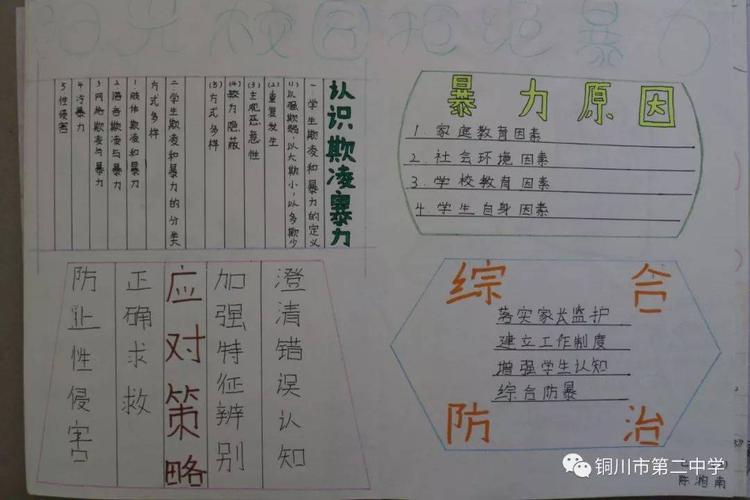 阳光校园拒绝暴力
认识欺凌暴力
一、学生欺凌和暴力的定义
(1)以强欺弱,以大欺小,以多欺少
(2)重复发生
(3)主观恶意性
(4)较为隐蔽
(5)方式多样
二、学生欺凌和暴力的分类
方式多样
1 肢体欺凌和暴力
2 语言欺凌与暴力
3 网络欺凌与暴力
4 冷暴力
5 性侵害
暴力原因
1. 家庭教育因素
2. 社会环境因素
3. 学校教育因素
4. 学生自身因素
澄清错误认知
加强特征辨别
应对策略
正确求救
防止性侵害
综合
落实家长监护
建立工作制度
增强学生认知
综合防暴
防治
铜川市第二中学